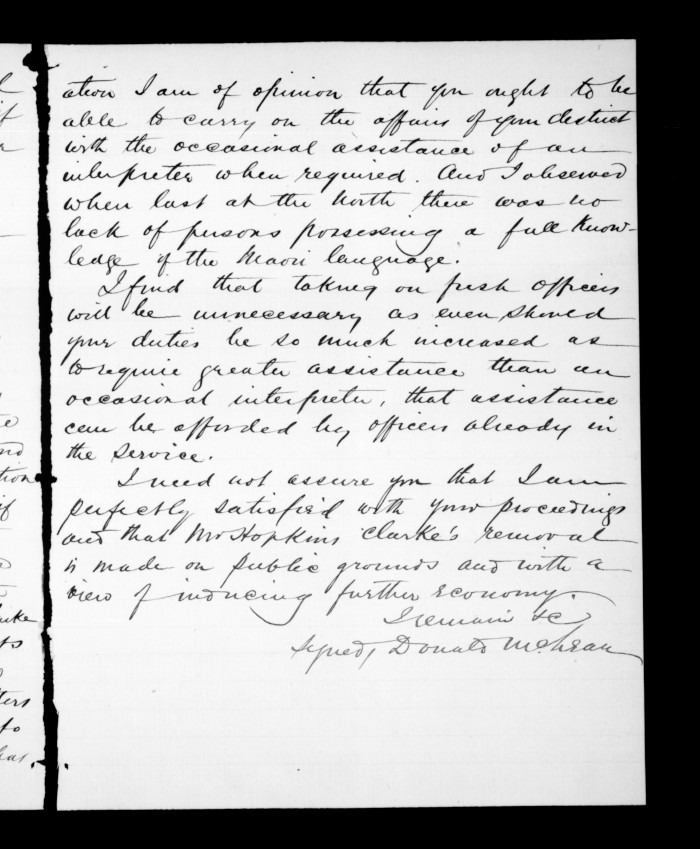 ation I am of opinion that you ought to be
able to carry on the affairs of your district
with the occasional assistance of an
interpreter when required. And I observed
when last at the North there was no
lack of persons possessing a full know-
ledge of the Maori language.
I find that taking on fresh officers
will be unnecessary as even should
your duties be so much increased as
to require greater assistance than an
occasional interpreter, that assistance
can be afforded by officers already in
the service.
I need not assure you that I am
perfectly satisfied with your proceedings
and that Mr Hopkins Clarke's removal
is made on public grounds and with a
view of inducing further economy.
I remain &c
Signed, Donald McLean